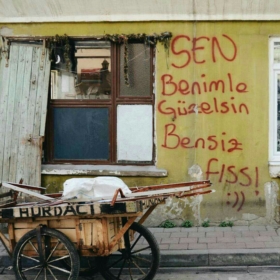 SEN
Benimle
Güzelsin
Bensiz
FISS!
:))
HURDACI